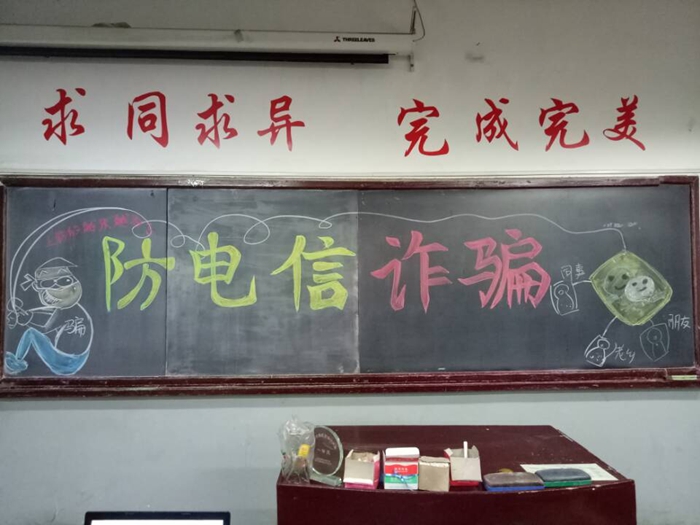 THREELEAVES
求同求异 完成完美
防电信诈骗
骗
同事
朋友